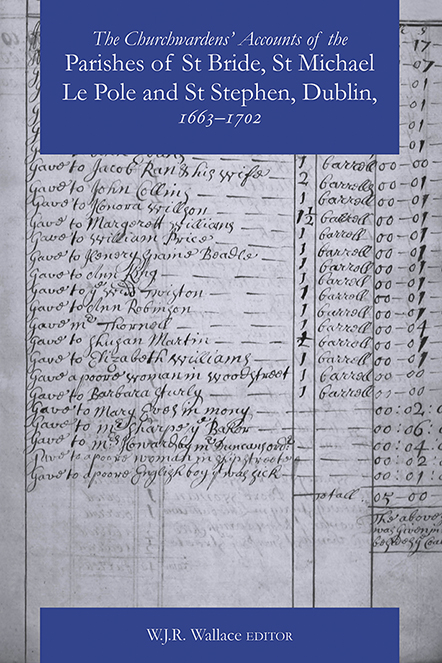 The Churchwardens' Accounts of the
Parishes of St Bride, St Michael
Le Pole and St Stephen, Dublin,
1663–1702
17
Gave to Jacob Ran & his wife — 1 barrell 00—01
Gave to John Collins — 2 barrells 00—01
Gave to Honora Willson — 1 barrell 00—01
Gave to Margerett Williams — 1½ barrell 00—01
Gave to William Price — 1 barrell 00—01
Gave to Henery Grame Beadle — 1 barrell 00—01
Gave to Ann King — 1 barrell 00—01
Gave to yᵉ Widᵒ Twiston — 1 barrell 00—01
Gave to Ann Robinson — 1 barrell 00—01
Gave mʳ Thornell — 1 barrell 00—04
Gave to Shusan Martin — barrell 00—01
Gave to Elizabeth Williams — 1 barrell 00—01
Gave a poore woman in wood street 1 barrell 00—00
Gave to Barbara — 1 barrell 00—00
Gave to Mary Eves in mony — 00:02:
Gave to mʳ Sharpe yᵉ Baker — 00:06:
Gave to mʳˢ Howard by mʳ Duncans 00:04:
a poore woman in 00:02:
Gave to a poore English boy yᵗ was sick — 00:01:
totall 05—00—
The above
was given
W.J.R. Wallace EDITOR